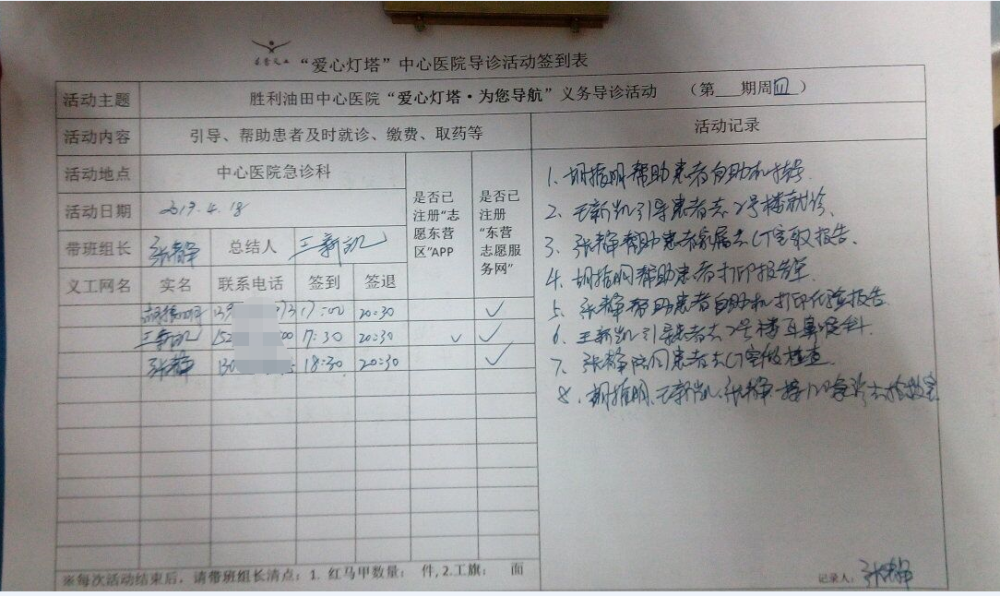 “爱心灯塔”中心医院导诊活动签到表
活动主题 胜利油田中心医院“爱心灯塔·为您导航”义务导诊活动 （第 期周四）
活动内容 引导、帮助患者及时就诊、缴费、取药等 活动记录
活动地点 中心医院急诊科
活动日期 2019.4.18
带班组长 张静 总结人 王新凯
是否已注册“志愿东营区”APP
是否已注册“东营志愿服务网”
义工网名 实名 联系电话 签到 签退
胡振明 139 73 17:00 20:30 ✓
王新凯 152 17:30 20:30 ✓ ✓
张静 130 18:30 20:30 ✓
1. 胡振明帮助患者自助机挂号.
2. 王新凯引导患者去2号楼就诊.
3. 张静帮助患者家属去CT室取报告.
4. 胡振明帮助患者打印报告单.
5. 张静帮助患者自助机打印化验报告.
6. 王新凯引导患者去2号楼耳鼻喉科.
7. 张静陪同患者去CT室做检查.
8. 胡振明、王新凯、张静接120急诊去抢救室
※每次活动结束后，请带班组长清点：1. 红马甲数量： 件，2.工旗： 面
记录人：张静